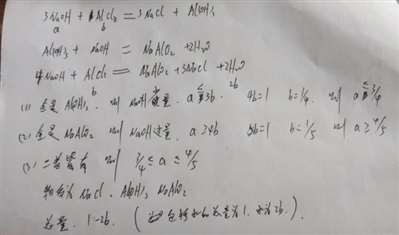 3NaOH + AlCl₃ = 3NaCl + Al(OH)₃
a b
Al(OH)₃ + NaOH = NaAlO₂ + 2H₂O
4NaOH + AlCl₃ = NaAlO₂ + 3NaCl + 2H₂O
b 2b
(1) 全是 Al(OH)₃ 则 NaOH a ≤ 3b 4b=1 b=1/4 则 a ≤ 3/4
(2) 全是 NaAlO₂ 则 NaOH过量 a ≥ 4b 5b=1 b=1/5 则 a ≥ 4/5
(3) 二者皆有 则 3/4 ≤ a ≤ 4/5
NaCl Al(OH)₃ NaAlO₂
总量 1-2b (量为1 水为2b)